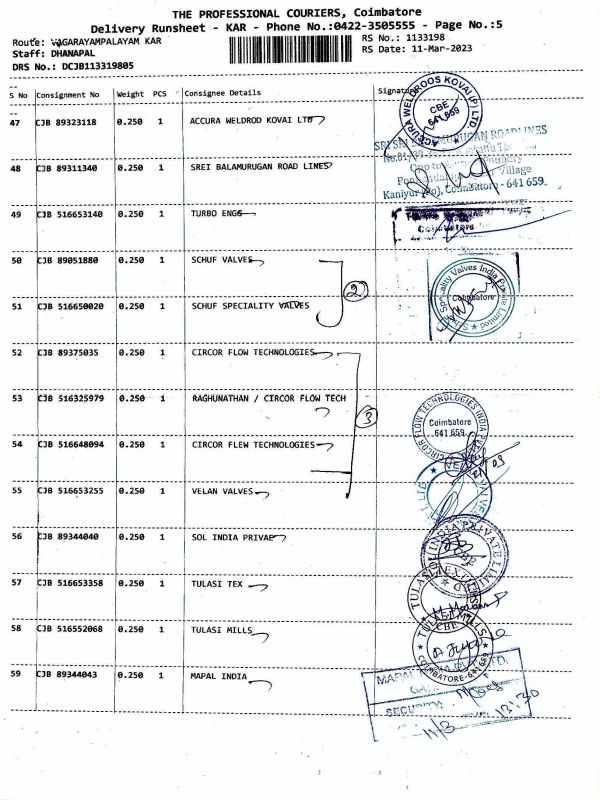 THE PROFESSIONAL COURIERS, Coimbatore
Delivery Runsheet - KAR - Phone No.:0422-3505555 - Page No.:5
Route: VAGARAYAMPALAYAM KAR
RS No.: 1133198
Staff: DHANAPAL
RS Date: 11-Mar-2023
DRS No.: DCJB113319805
S No Consignment No Weight PCS Consignee Details Signature
47 CJB 89323118 0.250 1 ACCURA WELDROD KOVAI LTD
CBE
641 659
48 CJB 89311340 0.250 1 SREI BALAMURUGAN ROAD LINES
Village
Kaniyur (Po), Coimbatore - 641 659
49 CJB 516653140 0.250 1 TURBO ENGS
Coimbatore
50 CJB 89051880 0.250 1 SCHUF VALVES
2
51 CJB 516650020 0.250 1 SCHUF SPECIALITY VALVES
Schuf Speciality Valves India Private Limited
Coimbatore
52 CJB 89375035 0.250 1 CIRCOR FLOW TECHNOLOGIES
53 CJB 516325979 0.250 1 RAGHUNATHAN / CIRCOR FLOW TECH
3
CIRCOR FLOW TECHNOLOGIES INDIA
Coimbatore
641 659
54 CJB 516648094 0.250 1 CIRCOR FLEW TECHNOLOGIES
55 CJB 516653255 0.250 1 VELAN VALVES
56 CJB 89344040 0.250 1 SOL INDIA PRIVAE
INDIA PRIVATE LIMITED
CBE
57 CJB 516653358 0.250 1 TULASI TEX
TULASI
58 CJB 516552068 0.250 1 TULASI MILLS
TULASI MILLS
CBE
COIMBATORE-641 659
59 CJB 89344043 0.250 1 MAPAL INDIA
MAPAL
SECURITY
11/3
13:30